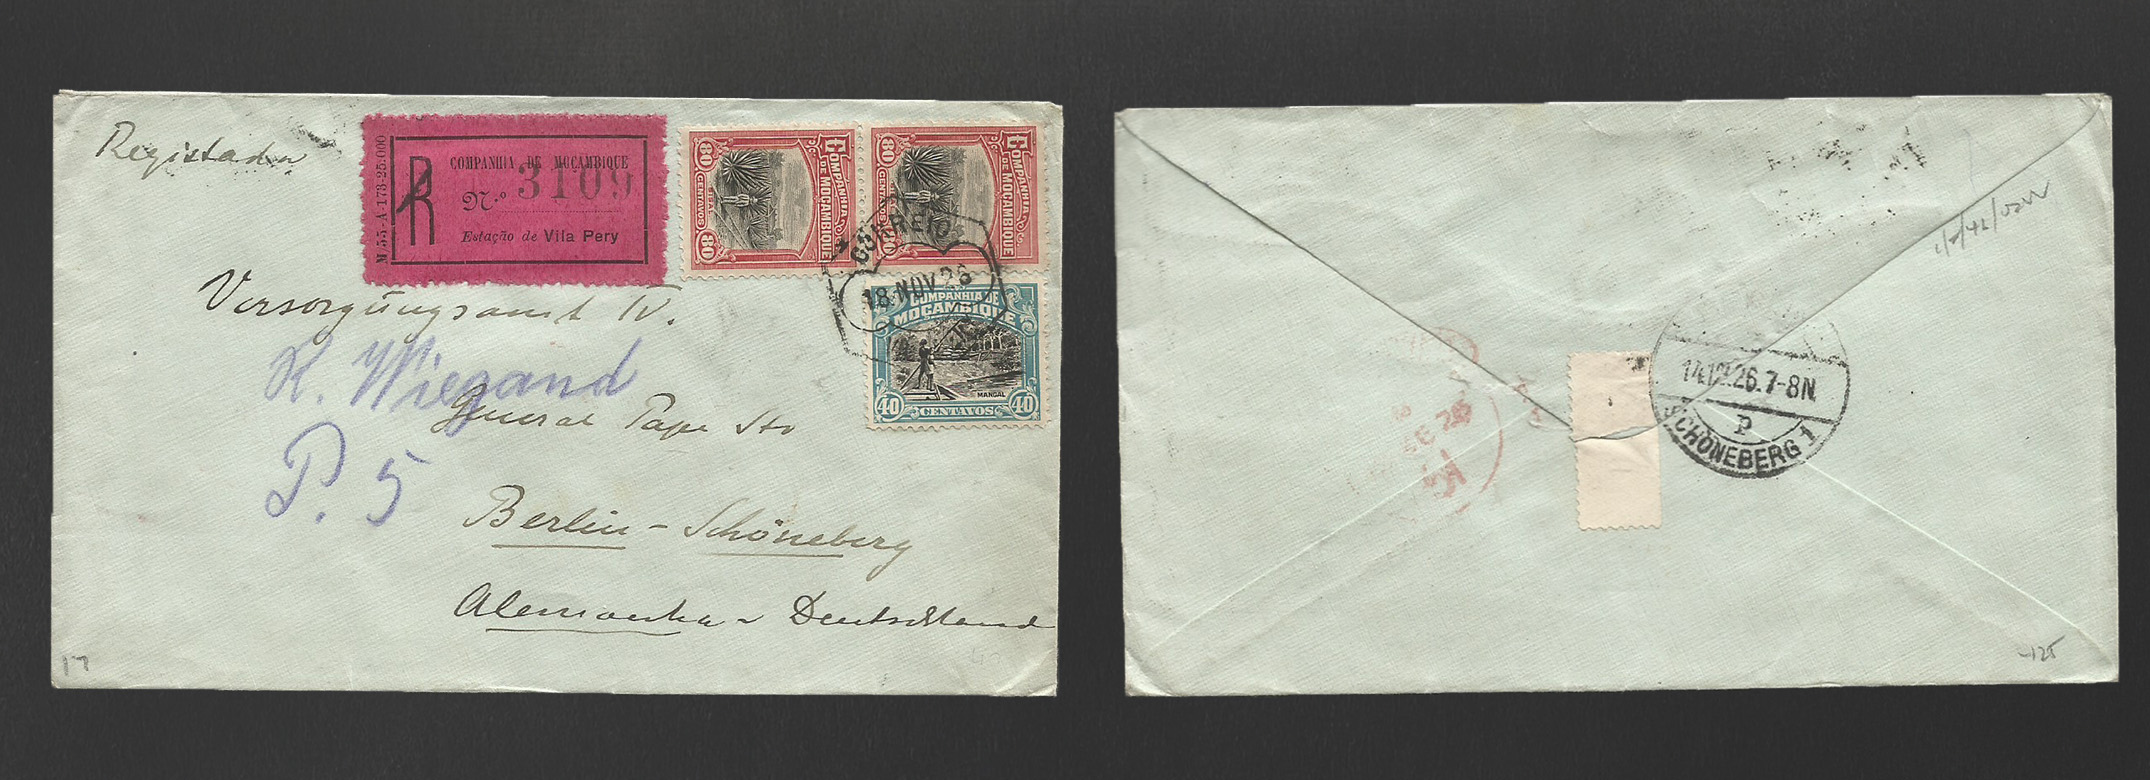 Registada
M/55-A-173-25.000
R
COMPANHIA DE MOÇAMBIQUE
N.º 3109
Estação de Vila Pery
COMPANHIA
DE MOÇAMBIQUE
SISAL
80 CENTAVOS 80
COMPANHIA
DE MOÇAMBIQUE
80 CENTAVOS 80
CORREIO
18 NOV 26
COMPANHIA DE
MOÇAMBIQUE
MANGAL
40 CENTAVOS 40
Versorgungsamt IV.
K. Wiegand
General Pape Str
P. 5
Berlin-Schöneberg
Alemanha - Deutschland
17
14.12.26.7-8N.
P
SCHÖNEBERG 1
26
-125